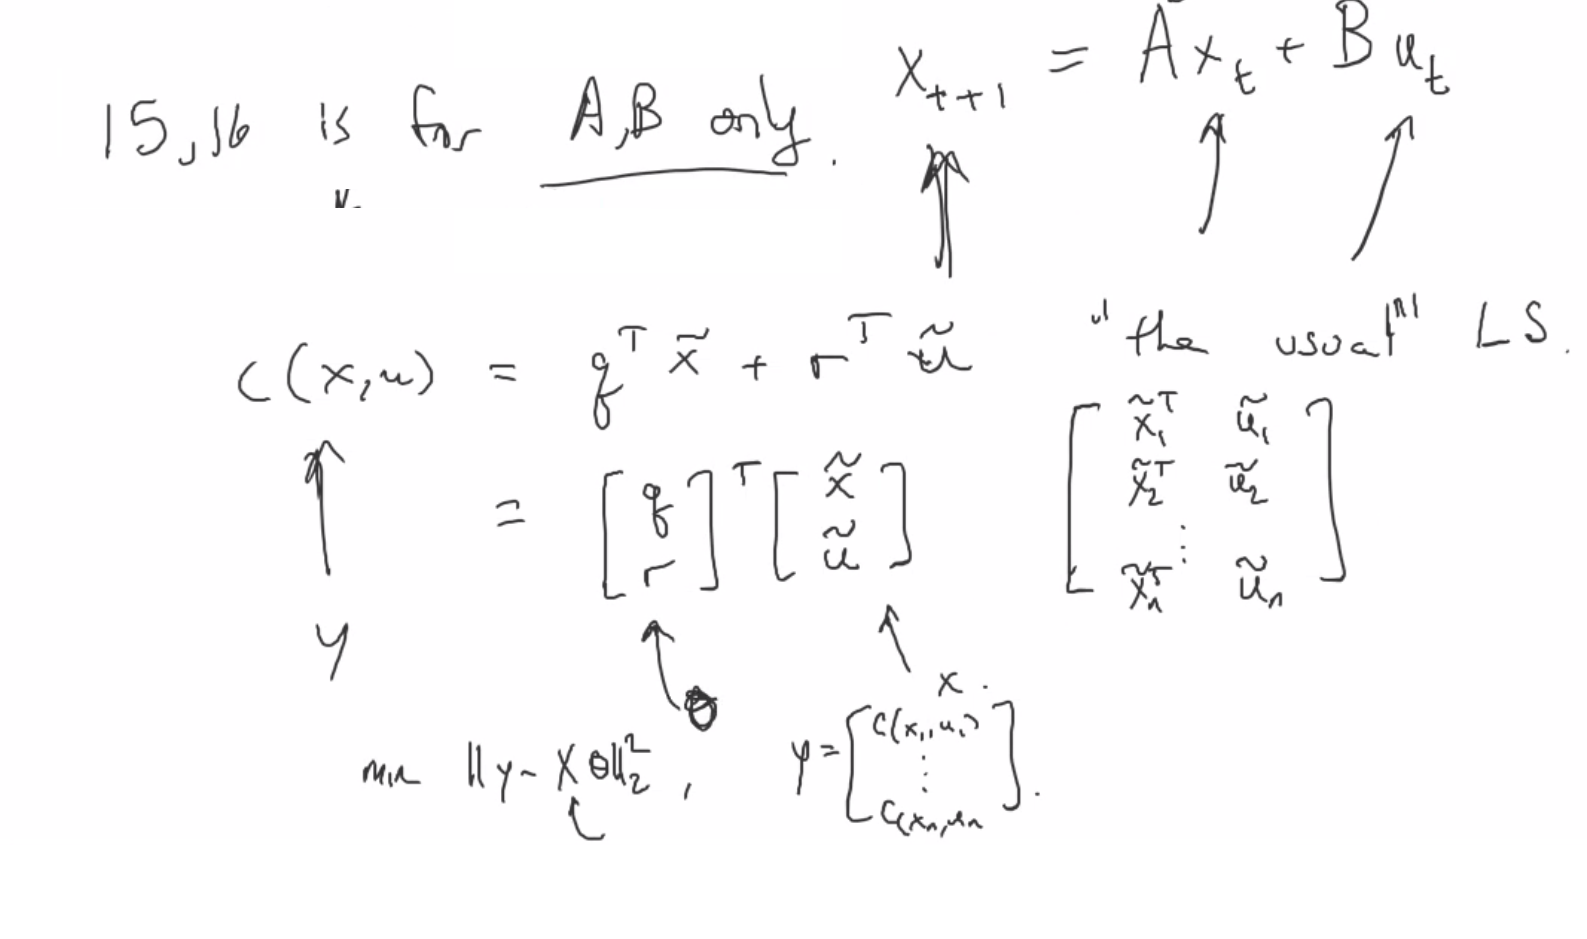 15,16 is for A,B only.
x_{t+1} = A x_t + B u_t
c(x,u) = q^T x̃ + r^T ũ
"the usual" LS.
= [q r]^T [x̃ ũ]
[x̃_1^T ũ_1
x̃_2^T ũ_2
⋮
x̃_n^T ũ_n]
y
θ
x.
min ||y - Xθ||_2^2 , y = [c(x_1,u_1) ⋮ c(x_n,u_n].